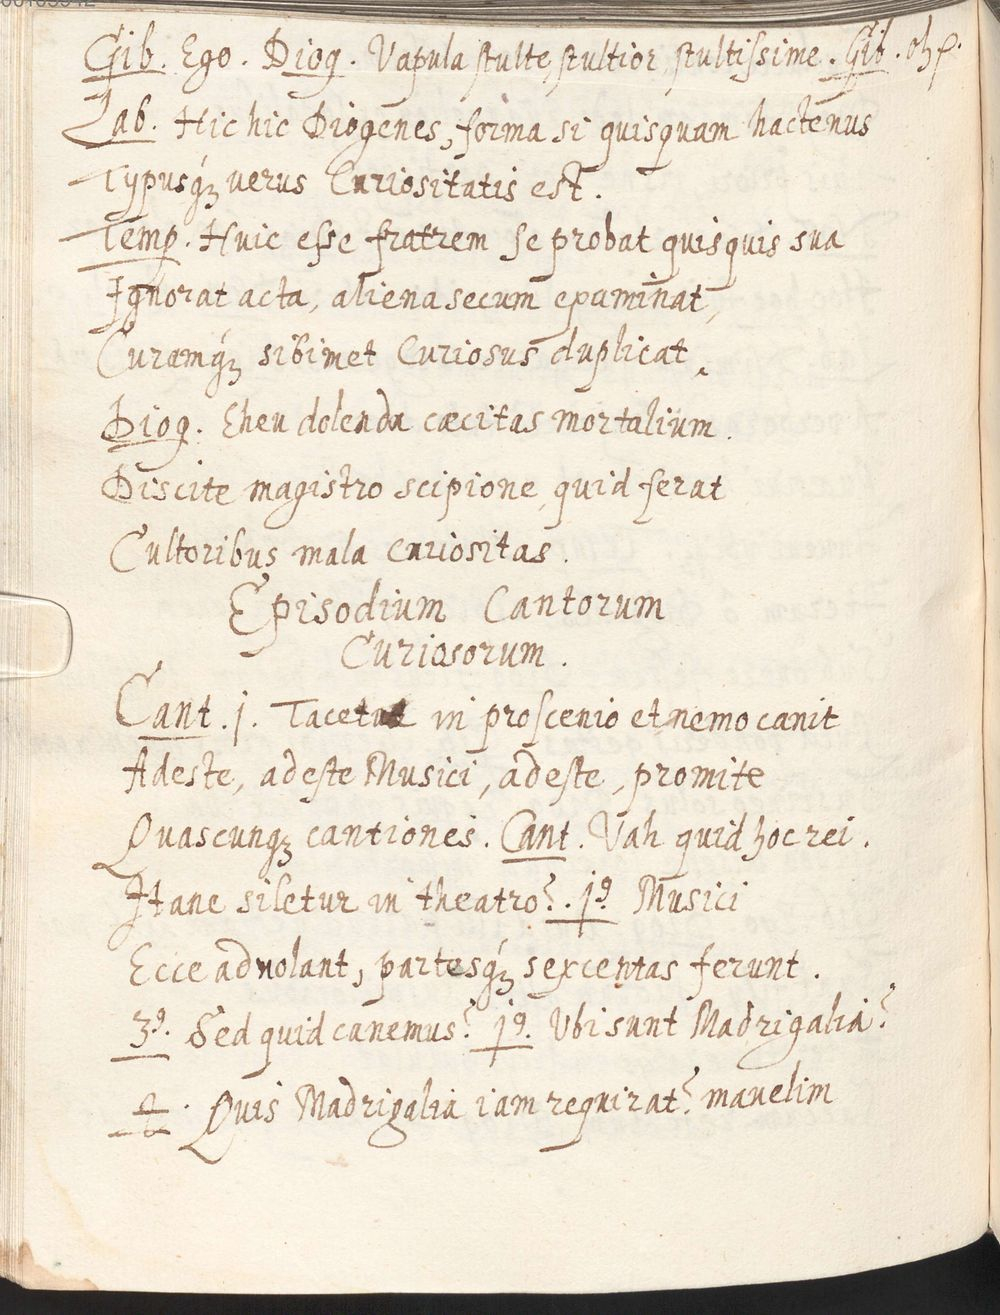 Gib. Ego. Diog. Vapula stulte, stultior, stultissime. Gib. ohe.
Lab. Hic hic Diogenes, forma si quisquam hactenus
Typusq́ꝫ verus Curiositatis est.
Temp. Huic esse fratrem se probat quisquis sua
Ignorat acta, aliena secum examinat,
Curamq́ꝫ sibimet Curiosus duplicat,
Diog. Eheu dolenda cæcitas mortalium.
Discite magistro scipione, quid ferat
Cultoribus mala curiositas.
Episodium Cantorum
Curiosorum.
Cant. j. Tacetur in proscenio et nemo canit
Adeste, adeste Musici, adeste, promite
Quascunqꝫ cantiones. Cant. Vah quid hoc rei.
Itane siletur in theatro? . jꝰ Musici
Ecce aduolant, partesq́ꝫ sexcentas ferunt.
3ꝰ. Sed quid canemus? jꝰ. Vbi sunt Madrigalia?
Quis Madrigalia iam requirat? mauelim